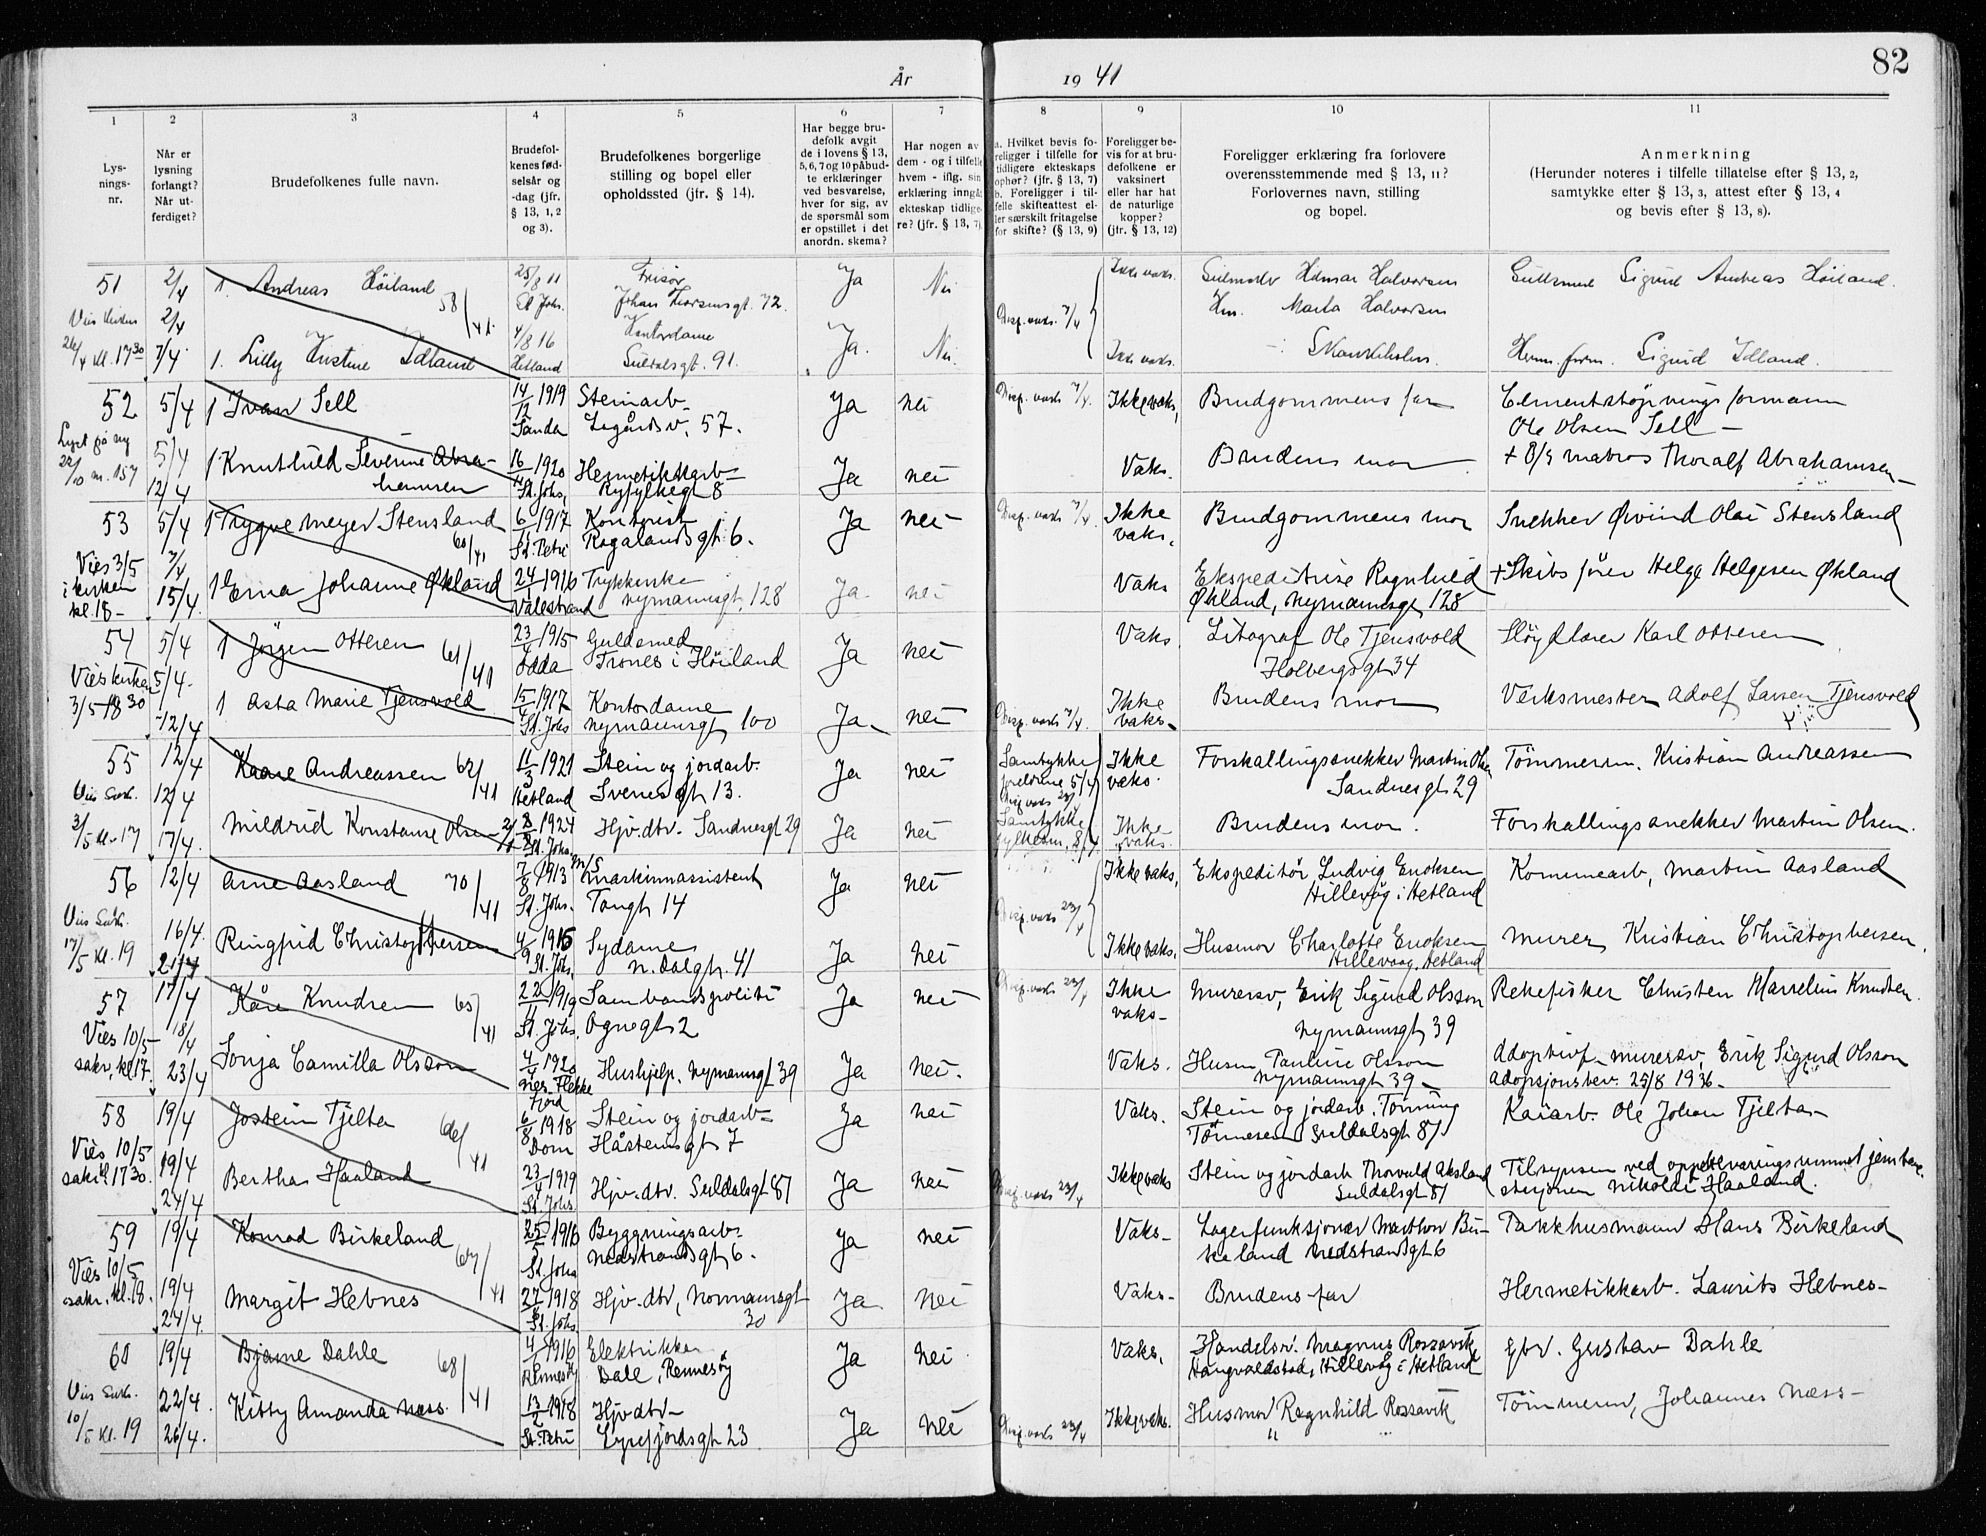 82
År 1941
1 2 3 4 5 6 7 8 9 10 11
Lys-
nings-
nr.
Når er
lysning
forlangt?
Når ut-
ferdiget?
Brudefolkenes fulle navn.
Brudefol-
kenes fød-
selsår og
-dag (jfr.
§ 13, 1, 2
og 3).
Brudefolkenes borgerlige
stilling og bopel eller
opholdssted (jfr. § 14).
Har begge bru-
defolk avgit
de i lovens § 13,
5,6,7 og 10 påbud-
te erklæringer
ved besvarelse,
hver for sig, av
de spørsmål som
er opstillet i det
anordn. skema?
Har nogen av
dem - og i tilfelle
hvem - iflg. sin
erklæring inngått
ekteskap tidlige-
re? (jfr. § 13, 7)
a. Hvilket bevis fo-
religger i tilfelle for
tidligere ekteskaps
ophør? (jfr. § 13, 7)
b. Foreligger i til-
felle skifteattest el-
ler særskilt fritagelse
for skifte? (§ 13, 9)
Foreligger be-
vis for at bru-
defolkene er
vaksinert
eller har hat
de naturlige
kopper?
(jfr. § 13, 12)
Foreligger erklæring fra forlovere
overensstemmende med § 13, 11?
Forlovernes navn, stilling
og bopel.
Anmerkning
(Herunder noteres i tilfelle tillatelse efter § 13, 2,
samtykke efter § 13, 3, attest efter § 13, 4
og bevis efter § 13, 8).
51 2/4 1. Andreas Høiland 58/41 25/8 11 Frisør Ja Nei Ikke vaks. Halvorsen Sigurd Andreas Høiland.
St. Johs. 72.
2/4 Disp. vaks. 7/4 Marta Halvorsen
26/4 kl. 17 30 7/4. 1. Lilly Kristine Idland 4/8 16 Kontordame Ja. Nei Ikke vaks. Sigurd Idland.
Hetland Suldalsgt. 91.
52 5/4 1 Ivan Sell 14/12 1919 Steinarb. Ja nei Disp. vaks 7/4. Ikke vaks. Brudgommens far Cementstøpningsformann
Sanda Lagårdsv. 57. Ole Olsen Sell
Lyst på ny 5/4 1 Knuthild Severine Abra- 16 1920 Hermetikkarb. Ja nei Vaks. Brudens mor + matros Thoralf Abrahamsen
22/10 nr. 157 12/4 hamsen St. Johs. Ryfylkegt 8
53 5/4 1 Trygve Meyer Stensland 60/41 6 1917 Kontorist Ja nei Disp. vaks 7/4. Ikke vaks. Brudgommens mor Snekker Øivind Olai Stensland
St. Petri Rogalandsgt. 6.
Vies 3/5 7/4
i kirken 15/4 1 Erna Johanne Økland 24 1916 Ja nei Vaks Ekspeditrise Ragnhild + Skibsfører Helge Helgesen Økland
kl. 18 Valestrand Nymannsgt. 128 Økland, Nymannsgt 128
54 5/4 1 Jörgen Otteren 61/41 23 1915 Guldsmed Ja nei Vaks Litograf Ole Tjensvold Sløydlærer Karl Otteren
Odda Trones i Höiland Holbergsgt 34
Vies kirken 5/4
3/5 18 30 12/4 1 Asta Marie Tjensvold 15 1917 Kontordame Ja nei Disp. vaks 7/4. Ikke vaks. Brudens mor Verksmester Adolf Larsen Tjensvold
St. Johs Nymannsgt 100
55 12/4 Kaare Andreassen 62/41 11/3 1921 Stein og jordarb. Ja nei Samtykke foreldrene 5/4 Ikke vaks. Forskallingssnekker Martin Olsen Tømmerm. Kristian Andreassen
Hetland Svenesgt 13. Sandnesgt 29
Vies Sakr. 12/4
3/5 kl. 17 17/4. Mildrid Konstanse Olsen 8 1924 Hjv. dtr. Sandnesgt 29 Ja nei Samtykke Ikke vaks. Brudens mor. Forskallingssnekker Martin Olsen.
St. Johs.
56 12/4 Arne Aasland 70/41 7/8 1913 m/s Maskinassistent Ja nei Ikke vaks. Ekspeditør Ludvig Enoksen Kommunearb. Martin Aasland
St. Johs. Tangt 14 Hillevåg i Hetland
Vies Sakr. 16/4. Disp. vaks 23/4
17/5 kl. 19 21/4 Ringfrid Christophersen 4/9 1915 Sydame Ja nei Ikke vaks. Husmor Charlotte Enoksen Murer Kristian Christophersen.
St. Johs. N. Dalgt. 41 Hillevaag, Hetland
57 17/4 Kåre Knudsen 65/41 22/11 1919 Sambandspoliti Ja nei Disp. vaks 23/4 Ikke vaks Murersv. Erik Sigurd Olsson Rekefisker Christen Marselius Knudsen.
St. Johs. Ognegt 2 Nymannsgt 39
Vies 10/5 18/4
sakr. kl. 17. 23/4 Sonja Camilla Olsson 4 1920 Hushjelp. Nymannsgt 39 Ja nei. Vaks. Husm Pauline Olsson Adoptivf. murersv. Erik Sigurd Olsson
Nes. Flekkefjord Nymannsgt 39 Adopsjonsbev. 25/8 1936
58 19/4 Jostein Tjelta 66/41 6/8 1918 Stein og jordarb. Ja nei Vaks. Stein og jordarb. Tønning Kaiarb. Ole Johan Tjelta
Dom Håsteinsgt 7 Tönnesen Suldalsgt 87
Vies 10/5 19/4
sakr. kl 17 30. 24/4 Bertha Haaland 23 1919 Hjv. dtr. Suldalsgt 87 Ja nei Disp. vaks 23/4 Ikke vaks Stein og jordarb Thorvald Aksland Tilsynsm ved oppbevaringsrummet jernbane-
St. Johs. Suldalsgt 87 stasjonen Nikolai Haaland.
59 19/4 Konrad Birkeland 67/41 25 1916 Byggningsarb. Ja nei Vaks Lagerfunksjonær Marthon Bir- Pakkhusmann Hans Birkeland
St. Johs Nedstrandsgt 6. keland Nedstrandsgt 6
Vies 10/5
sakr. kl. 18. 19/4 Margit Hebnes 27 1918 Hjv. dtr, Normannsgt Ja nei Vaks Brudens far Hermetikkarb. Laurits Hebnes
24/4. St. Johs. 30
60 19/4 Bjarne Dahle 68/41 4 1916 Elektriker Ja nei Vaks. Handelsv. Magnus Rossavik Gbr. Gustav Dahle
Rennesöy Dale, Rennesöy Haugvaldstad, Hillevåg i Hetland
Vies Sakr. 22/4. Kitty Amanda Næss 13/2 1918 Hjv dtr Ja nei Disp. vaks 23/4 Ikke vaks. Husmor Ragnhild Rossavik Tömmerm, Johannes Næss
10/5 kl. 19 26/4. St. Petri Lysefjordsgt 23 " "